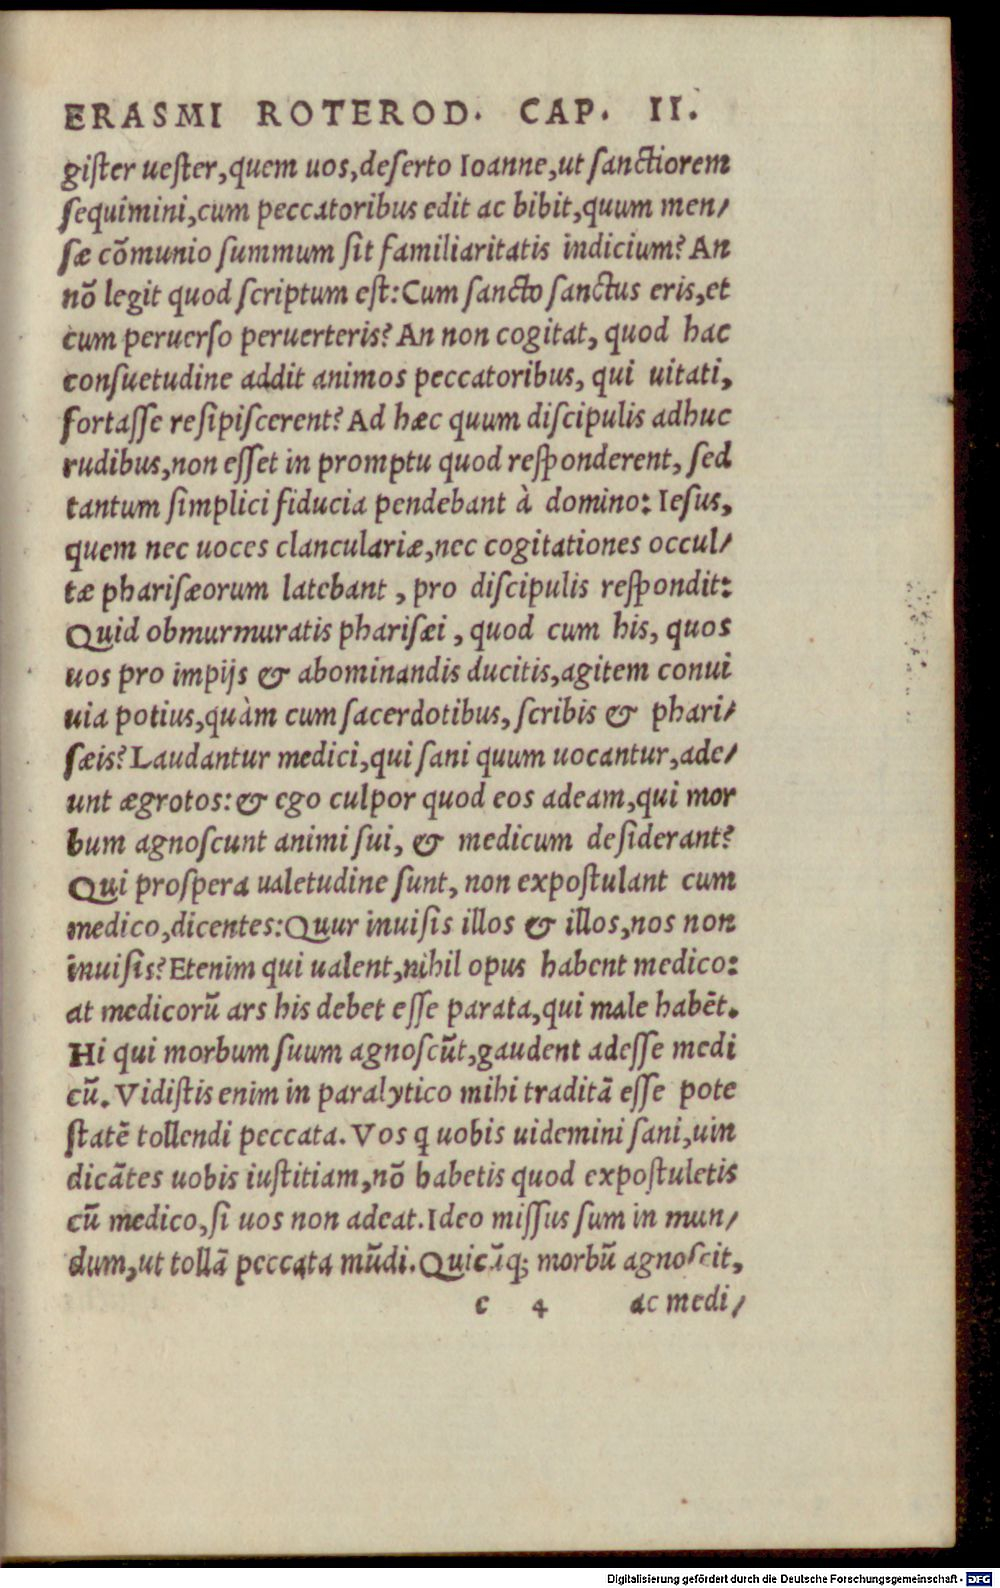 ERASMI ROTEROD. CAP. II.
giſter ueſter,quem uos,deſerto Ioanne,ut ſanctiorem
ſequimini,cum peccatoribus edit ac bibit,quum men/
ſæ cõmunio ſummum ſit familiaritatis indicium? An
nõ legit quod ſcriptum eſt: Cum ſancto ſanctus eris,et
cum peruerſo peruerteris? An non cogitat, quod hac
conſuetudine addit animos peccatoribus, qui uitati,
fortaſſe reſipiſcerent? Ad hæc quum diſcipulis adhuc
rudibus,non eſſet in promptu quod reſponderent, ſed
tantum ſimplici fiducia pendebant à domino: Ieſus,
quem nec uoces clanculariæ,nec cogitationes occul/
tæ phariſæorum latebant , pro diſcipulis reſpondit:
Quid obmurmuratis phariſæi , quod cum his, quos
uos pro impijs & abominandis ducitis,agitem conui
uia potius,quàm cum ſacerdotibus, ſcribis & phari/
ſæis? Laudantur medici,qui ſani quum uocantur,ade/
unt ægrotos: & ego culpor quod eos adeam,qui mor
bum agnoſcunt animi ſui, & medicum deſiderant?
Qui proſpera ualetudine ſunt, non expoſtulant cum
medico,dicentes: Quur inuiſis illos & illos,nos non
inuiſis? Etenim qui ualent,nihil opus habent medico:
at medicorũ ars his debet eſſe parata,qui male habẽt.
Hi qui morbum ſuum agnoſcũt,gaudent adeſſe medi
cũ. Vidiſtis enim in paralytico mihi traditã eſſe pote
ſtatẽ tollendi peccata. Vos q uobis uidemini ſani,uin
dicãtes uobis iuſtitiam,nõ habetis quod expoſtuletis
cũ medico, ſi uos non adeat. Ideo miſſus ſum in mun/
dum,ut tollã peccata mũdi. Quicũq; morbũ agnoſcit,
c 4 ac medi/
Digitalisierung gefördert durch die Deutsche Forschungsgemeinschaft - DFG